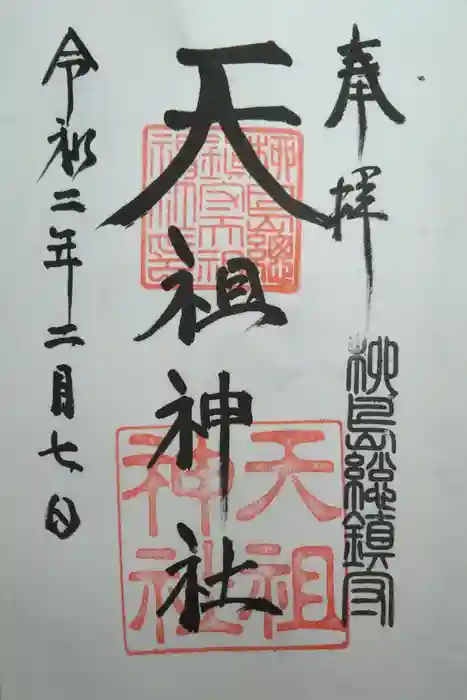 奉拝
柳島総鎮守
天祖神社
柳島總鎮守天祖神社之印
天祖神社
令和二年二月七日